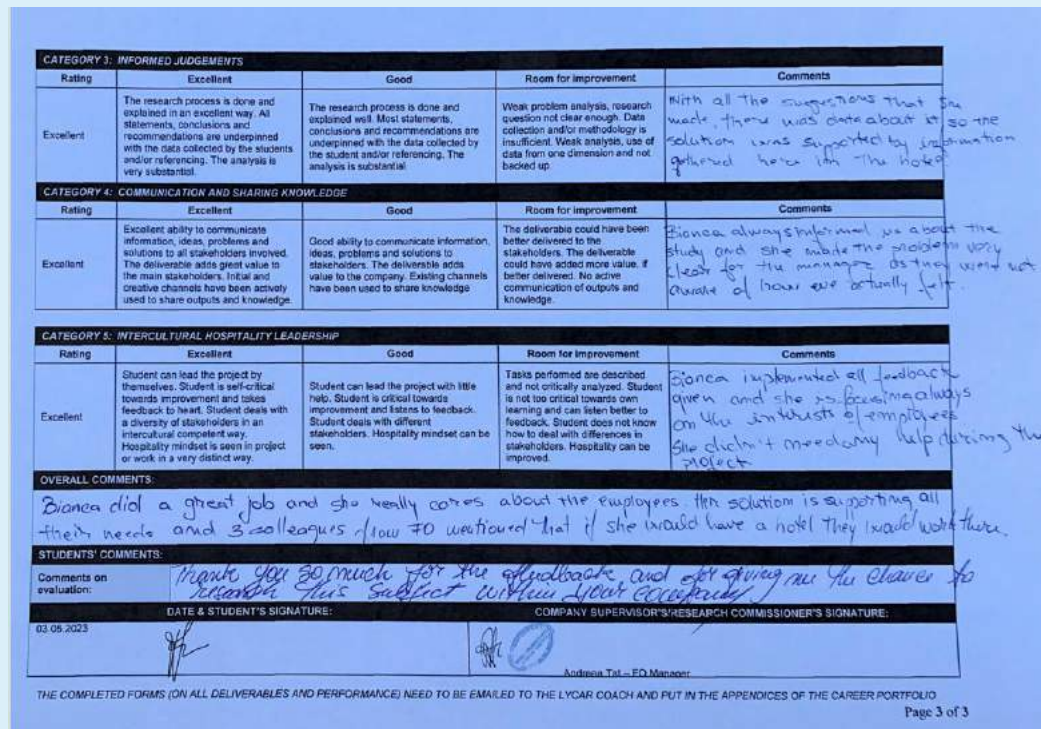 CATEGORY 3: INFORMED JUDGEMENTS
Rating Excellent Good Room for improvement Comments
Excellent
The research process is done and
explained in an excellent way. All
statements, conclusions and
recommendations are underpinned
with the data collected by the students
and/or referencing. The analysis is
very substantial.
The research process is done and
explained well. Most statements,
conclusions and recommendations are
underpinned with the data collected by
the student and/or referencing. The
analysis is substantial
Weak problem analysis, research
question not clear enough. Data
collection and/or methodology is
insufficient. Weak analysis, use of
data from one dimension and not
backed up.
With all the suggestions that she
made, there was data about it so the
solution was supported by information
gathered here in the hotel
CATEGORY 4: COMMUNICATION AND SHARING KNOWLEDGE
Rating Excellent Good Room for improvement Comments
Excellent
Excellent ability to communicate
information, ideas, problems and
solutions to all stakeholders involved.
The deliverable adds great value to
the main stakeholders. Initial and
creative channels have been actively
used to share outputs and knowledge.
Good ability to communicate information,
ideas, problems and solutions to
stakeholders. The deliverable adds
value to the company. Existing channels
have been used to share knowledge
The deliverable could have been
better delivered to the
stakeholders. The deliverable
could have added more value, if
better delivered. No active
communication of outputs and
knowledge.
Bianca always informed us about the
study and she made the problem very
clear for the manager as they were not
aware of how we actually felt.
CATEGORY 5: INTERCULTURAL HOSPITALITY LEADERSHIP
Rating Excellent Good Room for improvement Comments
Excellent
Student can lead the project by
themselves. Student is self-critical
towards improvement and takes
feedback to heart. Student deals with
a diversity of stakeholders in an
intercultural competent way.
Hospitality mindset is seen in project
or work in a very distinct way.
Student can lead the project with little
help. Student is critical towards
improvement and listens to feedback.
Student deals with different
stakeholders. Hospitality mindset can be
seen.
Tasks performed are described
and not critically analyzed. Student
is not too critical towards own
learning and can listen better to
feedback. Student does not know
how to deal with differences in
stakeholders. Hospitality can be
improved.
Bianca implemented all feedback
given and she is focusing always
on the interests of employees
She didn't need any help during the
project
OVERALL COMMENTS:
Bianca did a great job and she really cares about the employees. Her solution is supporting all
their needs and 3 colleagues from FO mentioned that if she would have a hotel they would work there.
STUDENTS' COMMENTS:
Comments on
evaluation:
Thank you so much for the feedback, and for giving me the chance to
research this subject within your company
DATE & STUDENT'S SIGNATURE: COMPANY SUPERVISOR'S/RESEARCH COMMISSIONER'S SIGNATURE:
03.05.2023
Andreea Tat – FO Manager
THE COMPLETED FORMS (ON ALL DELIVERABLES AND PERFORMANCE) NEED TO BE EMAILED TO THE LYCAR COACH AND PUT IN THE APPENDICES OF THE CAREER PORTFOLIO
Page 3 of 3